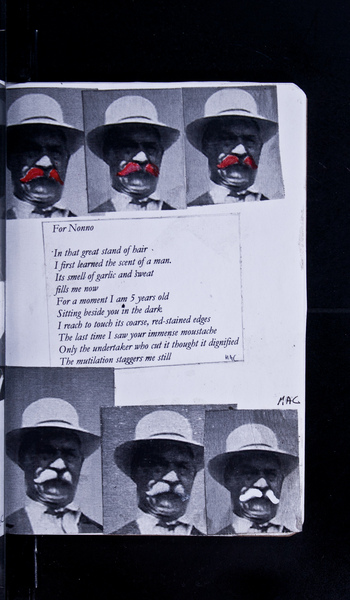 For Nonno
In that great stand of hair
I first learned the scent of a man.
Its smell of garlic and sweat
fills me now
For a moment I am 5 years old
Sitting beside you in the dark
I reach to touch its coarse, red-stained edges
The last time I saw your immense moustache
Only the undertaker who cut it thought it dignified
The mutilation staggers me still
MAC
MAC